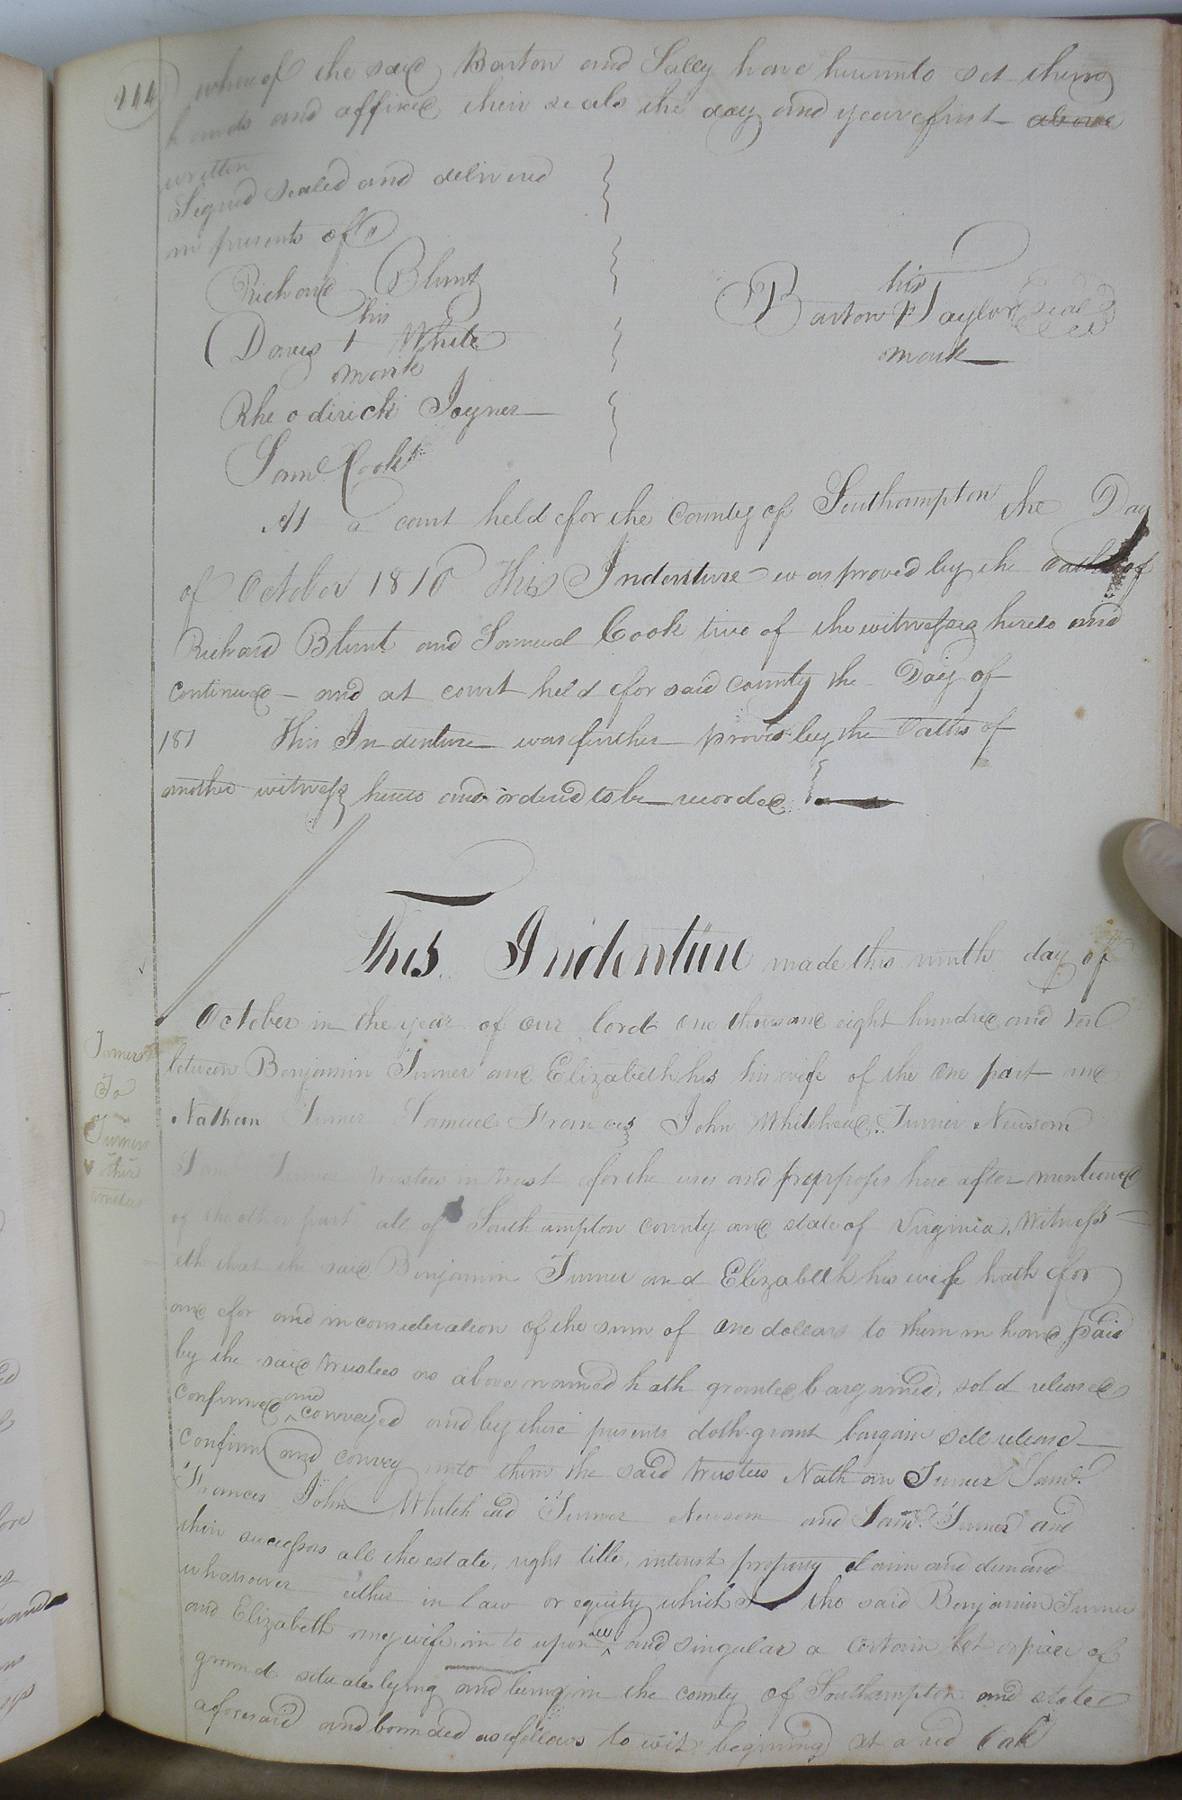 244
whereof the said Barton and Sally have hereunto set theirs
hands and affixed their seals the day and year first above
written
Signed sealed and delivered
in presents of
Richard Blunt
his
Davis + White
mark
Rhodirick Joyner
Saml Cook
his
Barton P Taylor Seal
mark
At a court held for the County of Southampton the Day
of October 1810 This Indenture was proved by the oaths of
Richard Blunt and Samuel Cook two of the witnesses hereto and
continued – and at court held for said county the Day of
181 This Indenture was further proved by the Oaths of
another witness hereto and ordered to be recorded
Turner
To
Turner
& other
trustees
This Indenture made this ninth day of
October in the year of our lord one thousand eight hundred and ten
between Benjamin Turner and Elizabeth his his wife of the One part and
Nathan Turner Samuel Frances John Whitehead Turner Newsom
Saml Turner trustees in trust for the uses and purposes here after mentioned
of the other part all of Southampton county and state of Virginia, Witness
eth that the said Benjamin Turner and Elizabeth his wife hath for
and for and in consideration of the sum of One dollars to them in hand paid
by the said trustees as above named hath granted bargained, sold released
confirmed and conveyed and by these presents doth grant bargain sell release
confirm and convey unto them the said trustees Nathan Turner Saml
Frances John Whitehead Turner Newsom and Saml Turner and
their successors all the estate, right title, interest property claim and demand
whatsoever either in law or equity which the said Benjamin Turner
and Elizabeth my wife in to upon all and singular a certain lot or piece of
ground situate lying and being in the county of Southampton and state
aforesaid and bounded as follows to wit, begining at a red Oak